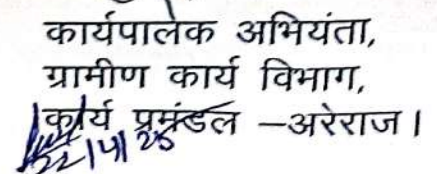 कार्यपालक अभियंता,
ग्रामीण कार्य विभाग,
कार्य प्रमंडल –अरेराज।